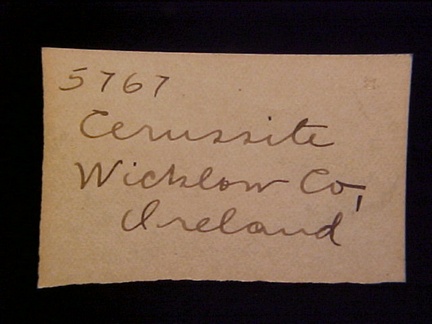 5767
Cerussite
Wicklow Co,
Ireland